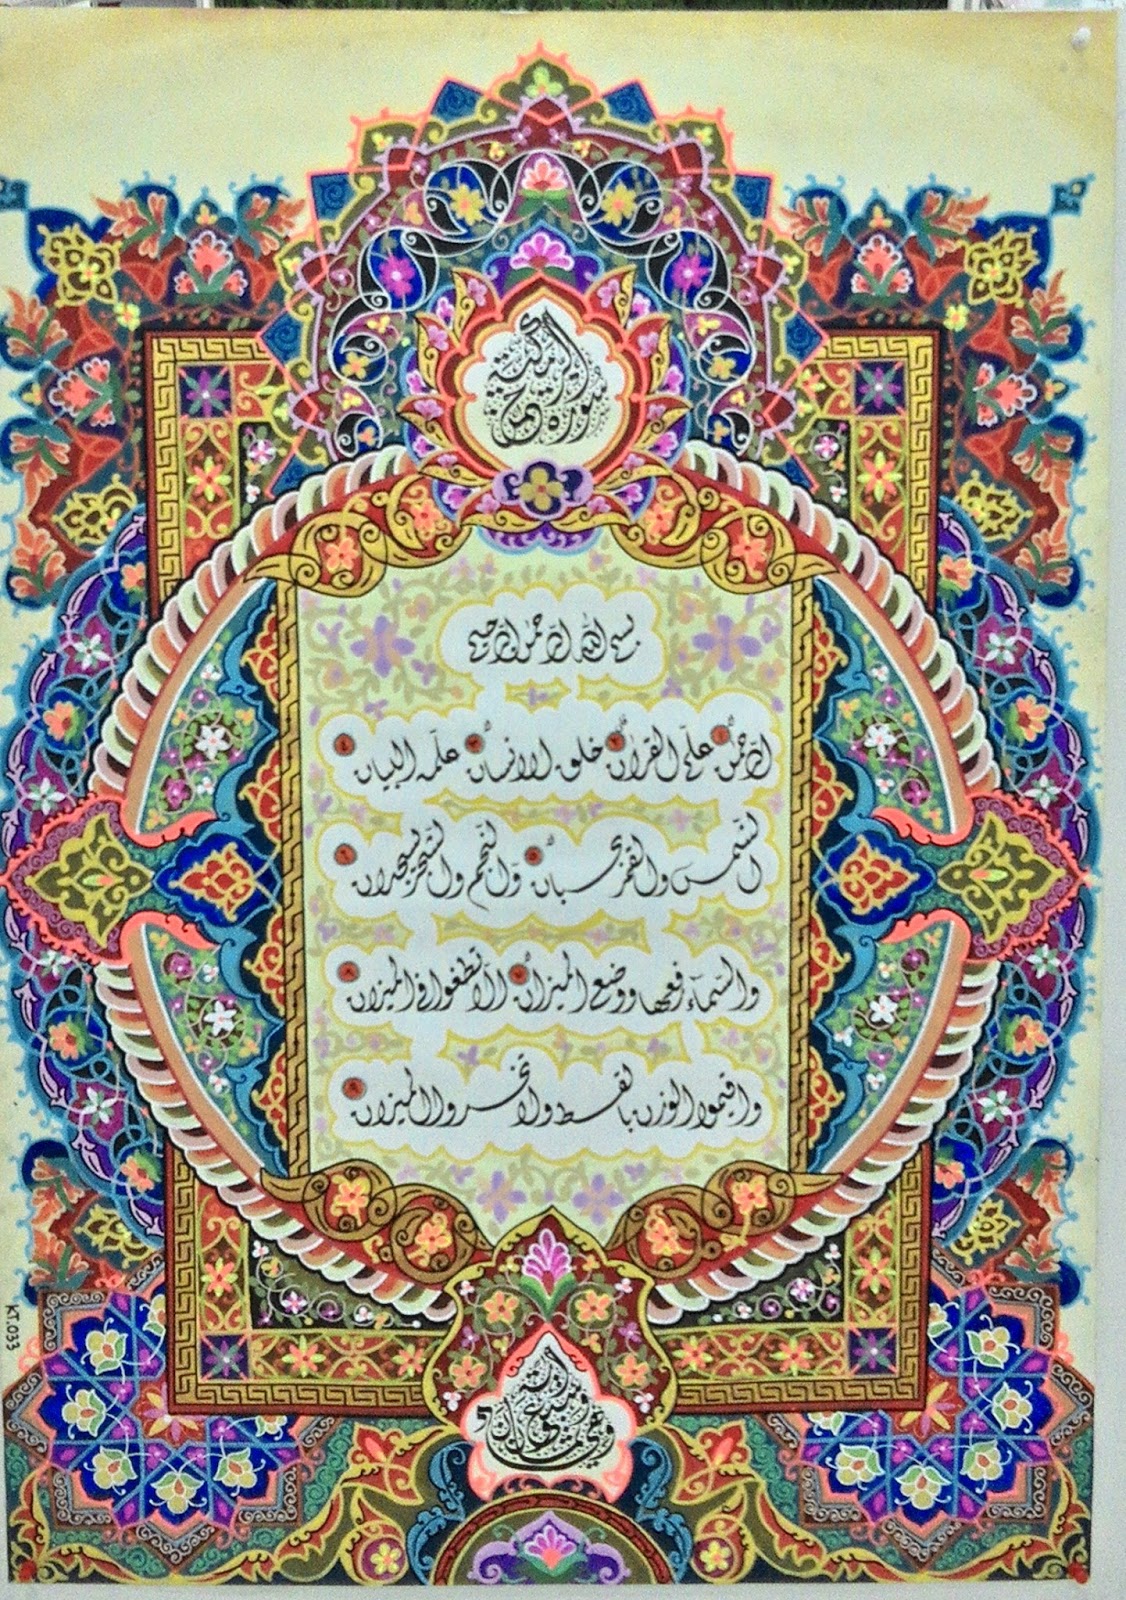 سورة الرحمن
بسم الله الرحمن الرحيم
الرحمن ١ علّم القرآن ٢ خلق الإنسان ٣ علّمه البيان ٤
الشّمس والقمر بحسبان ٥ والنّجم والشّجر يسجدان ٦
والسّمآء رفعها ووضع الميزان ٧ ألّا تطغوا في الميزان ٨
واقيموا الوزن بالقسط ولا تخسروا الميزان ٩
KT.033